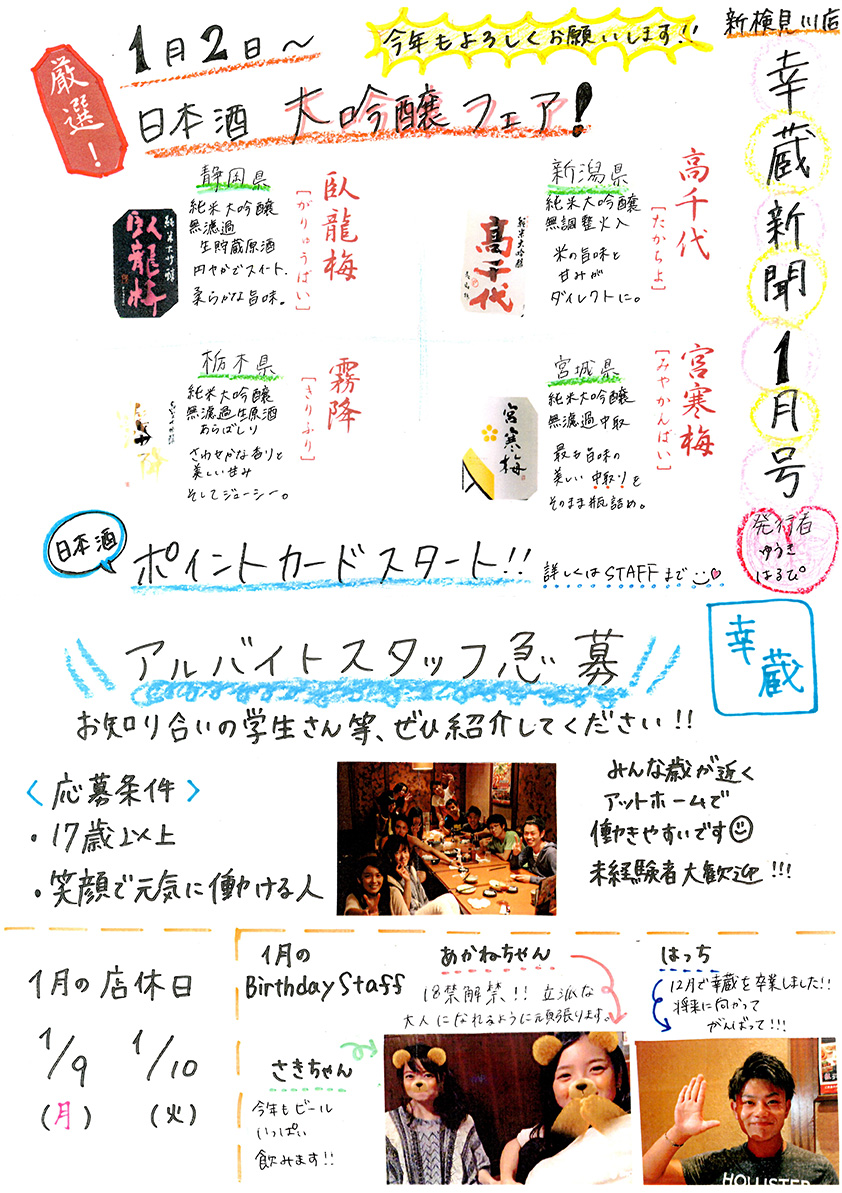 新検見川店
幸蔵新聞1月号
発行者
ゆうき
はるぴ
今年もよろしくお願いします!!
厳選!
1月2日〜
日本酒 大吟醸フェア!
高千代
[たかちよ]
新潟県
純米大吟醸
無調整火入
米の旨味と
甘みが
ダイレクトに。
純米大吟醸
高千代
臥龍梅
[がりゅうばい]
静岡県
純米大吟醸
無濾過
生貯蔵原酒
円やかでスイート.
柔らかな旨味。
純米大吟醸
臥龍梅
宮寒梅
[みやかんばい]
宮城県
純米大吟醸
無濾過中取
最も旨味の
美しい中取りを
そのまま瓶詰め。
宮寒梅
霧降
[きりふり]
栃木県
純米大吟醸
無濾過生原酒
あらばしり
さわやかな香りと
美しい甘み
そしてジューシー。
日本酒
ポイントカードスタート!!
詳しくはSTAFFまで
幸蔵
アルバイトスタッフ急募
お知り合いの学生さん等、ぜひ紹介してください!!
〈応募条件〉
・17歳以上
・笑顔で元気に働ける人
みんな歳が近く
アットホームで
働きやすいです
未経験者大歓迎!!!
1月の店休日
1/9 1/10
(月) (火)
1月の
Birthday Staff
あかねちゃん
18禁解禁!! 立派な
大人になれるように頑張ります。
さきちゃん
今年もビール
いっぱい
飲みます!!
はっち
12月で幸蔵を卒業しました!!
将来に向かって
がんばって!!!
HOLLISTER